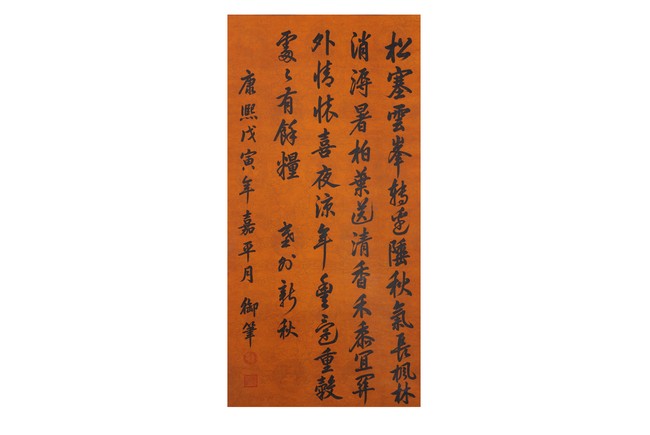 松塞雲峯轉邊陲秋氣長楓林
消溽暑柏葉送清香禾黍冝關
外情懷喜夜涼年豊重穀
處〻有餘糧 塞外新秋
康熙戊寅年嘉平月 御筆